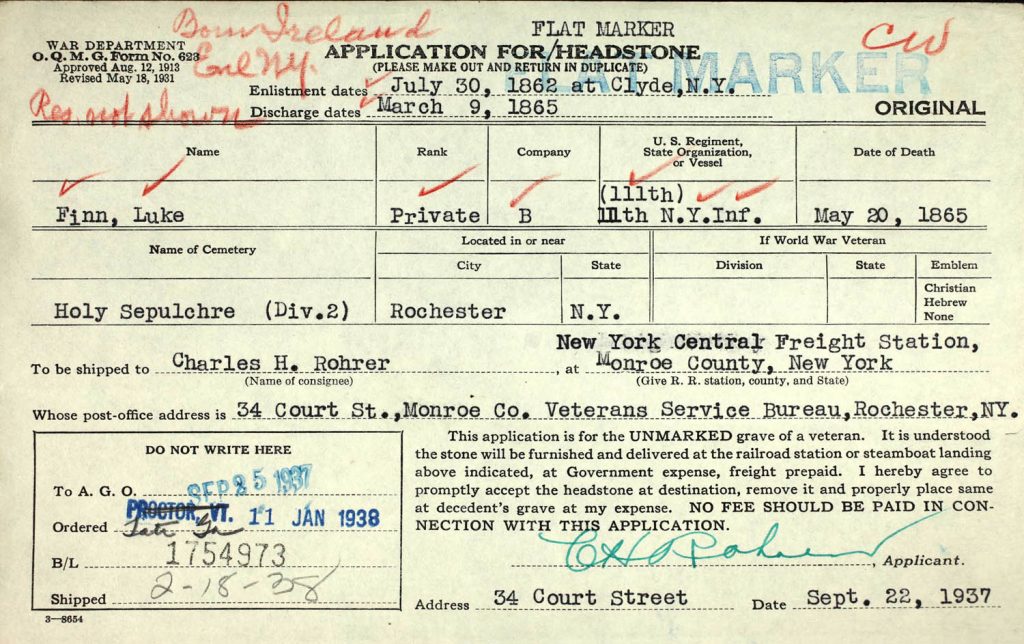 Born Ireland
Enl NY.
Res. not shown
CW
FLAT MARKER
WAR DEPARTMENT
O. Q. M. G. Form No. 623
Approved Aug. 12, 1913
Revised May 18, 1931
APPLICATION FOR/HEADSTONE
(PLEASE MAKE OUT AND RETURN IN DUPLICATE)
FLAT MARKER
ORIGINAL
Enlistment dates July 30, 1862 at Clyde,N.Y.
Discharge dates March 9, 1865
Name Rank Company U. S. Regiment, State Organization, or Vessel Date of Death
(111th)
Finn, Luke Private B 111th N.Y.Inf. May 20, 1865
Name of Cemetery Located in or near If World War Veteran
City State Division State Emblem
Christian
Hebrew
None
Holy Sepulchre (Div.2) Rochester N.Y.
New York Central Freight Station,
To be shipped to Charles H. Rohrer , at Monroe County, New York
(Name of consignee) (Give R. R. station, county, and State)
Whose post-office address is 34 Court St.,Monroe Co. Veterans Service Bureau,Rochester,NY.
DO NOT WRITE HERE
To A. G. O. SEP 25 1937
PROCTOR, VT. 11 JAN 1938
Ordered Tate Ga
B/L 1754973
Shipped 2-18-38
This application is for the UNMARKED grave of a veteran. It is understood
the stone will be furnished and delivered at the railroad station or steamboat landing
above indicated, at Government expense, freight prepaid. I hereby agree to
promptly accept the headstone at destination, remove it and properly place same
at decedent's grave at my expense. NO FEE SHOULD BE PAID IN CON-
NECTION WITH THIS APPLICATION.
C H Rohrer , Applicant.
Address 34 Court Street Date Sept. 22, 1937
3—8654